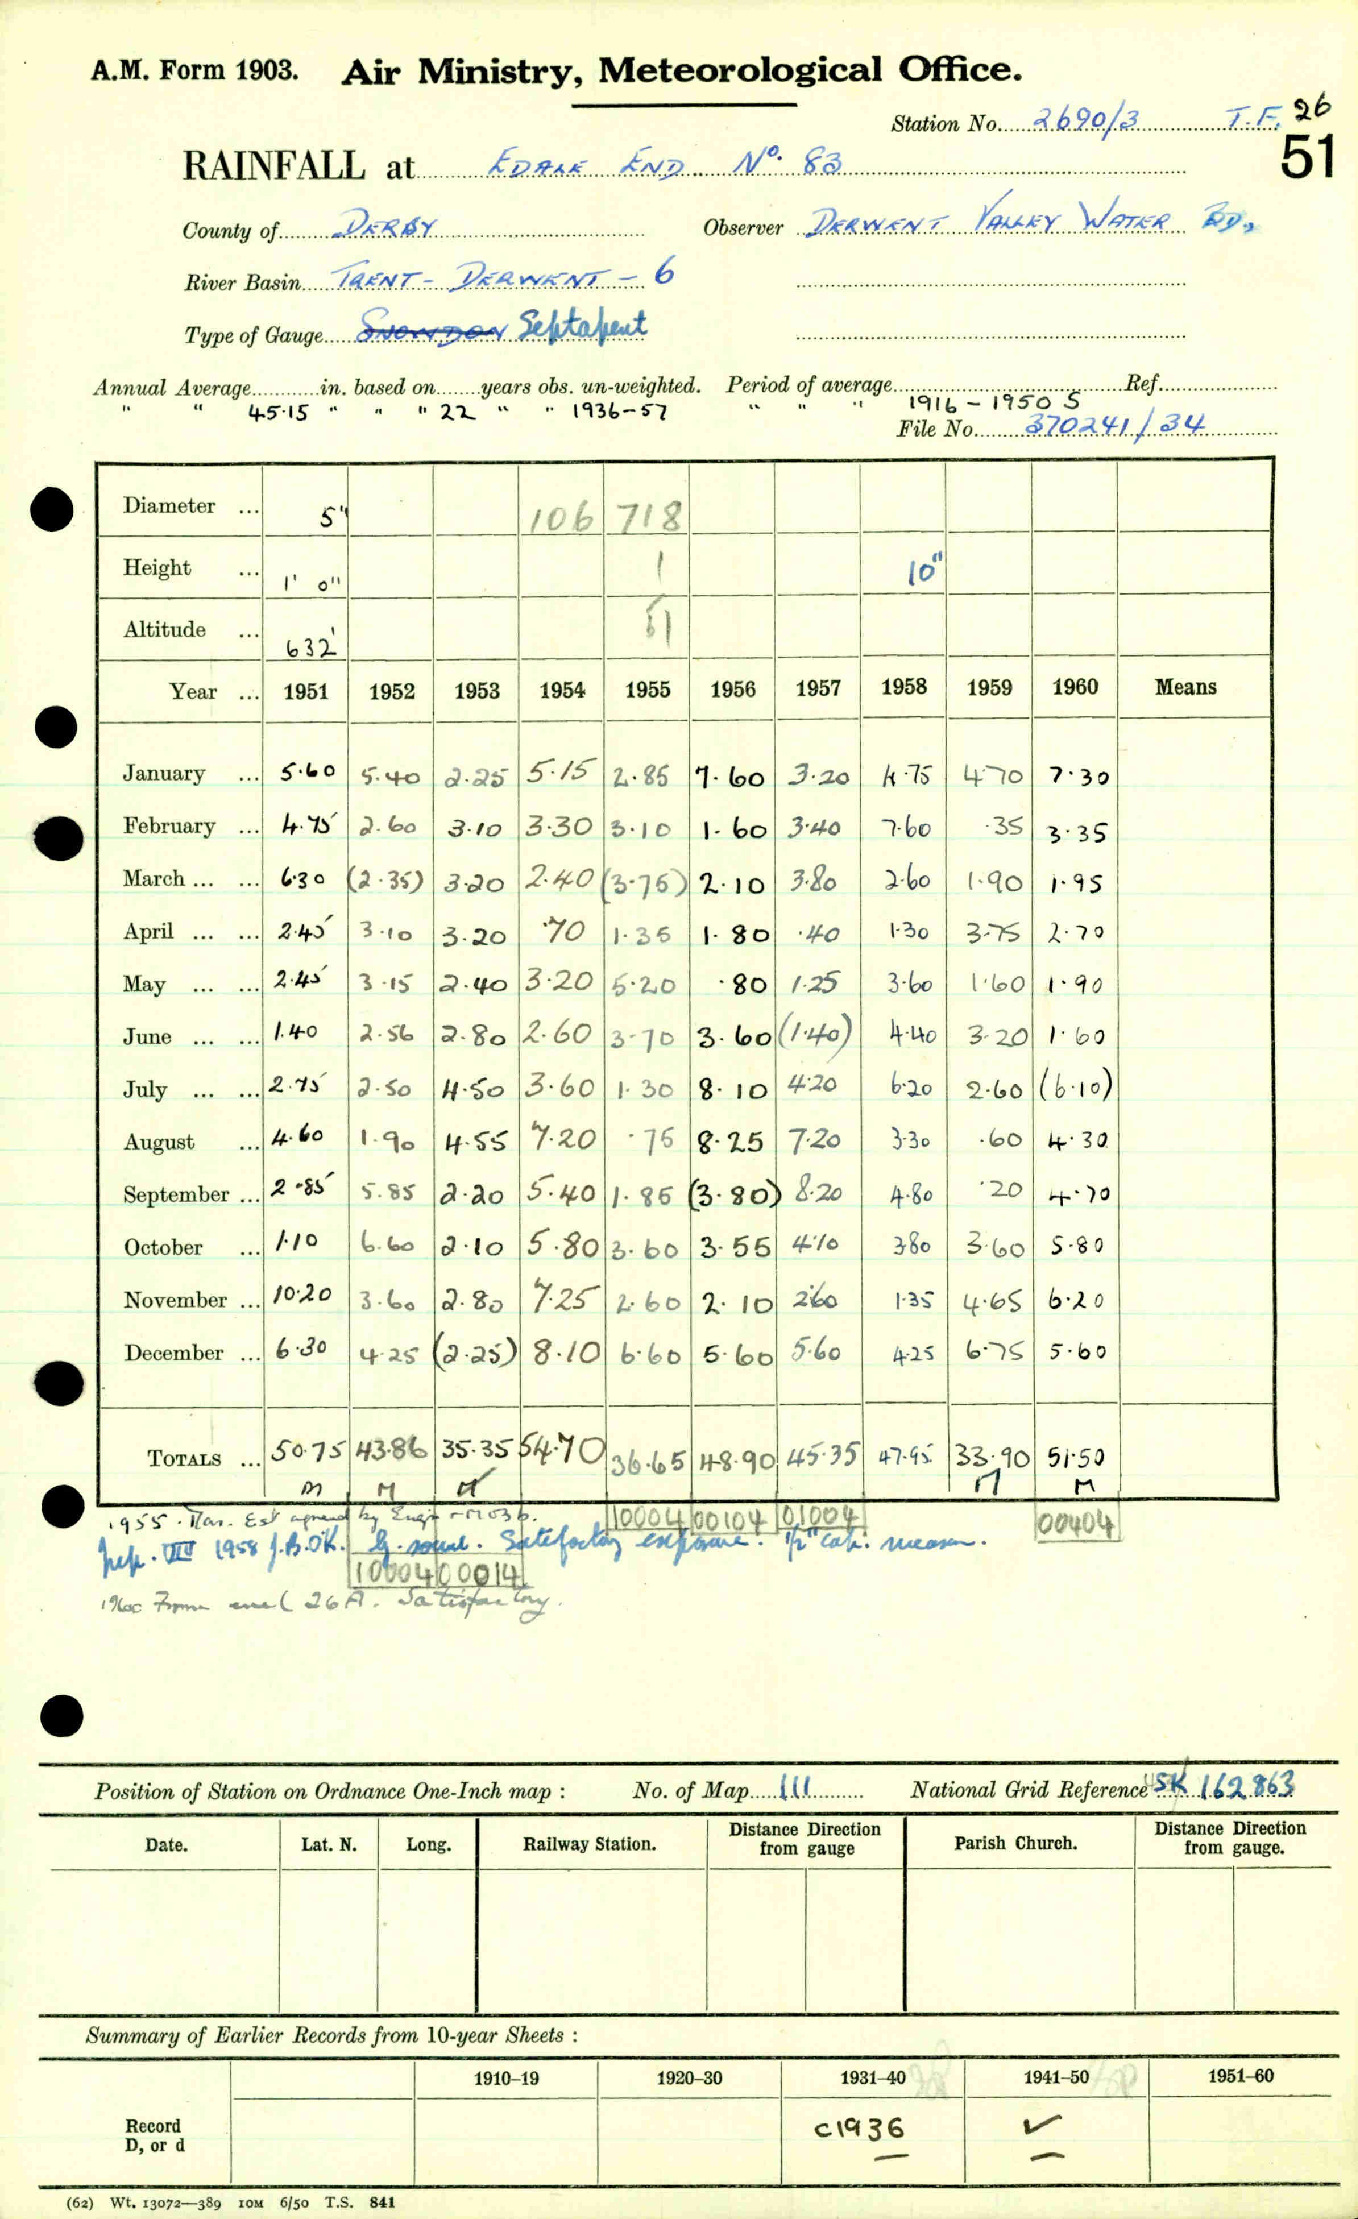 A.M. Form 1903. Air Ministry, Meteorological Office.
Station No. 2690/3 T.F. 26
51
RAINFALL at EDALE END No. 83
County of DERBY Observer DERWENT VALLEY WATER BD.
River Basin TRENT - DERWENT - 6
Type of Gauge SNOWDON Septapent
Annual Average in. based on years obs. un-weighted. Period of average Ref.
" " 45.15 " " " 22 " " 1936-57 " " " 1916 - 1950 S
File No. 370241/34
Diameter ... 5" 106 718
Height ... 1' 0" 1 10"
Altitude ... 632' 51
Year ... 1951 1952 1953 1954 1955 1956 1957 1958 1959 1960 Means
January ... 5.60 5.40 2.25 5.15 2.85 7.60 3.20 4.75 4.70 7.30
February ... 4.75 2.60 3.10 3.30 3.10 1.60 3.40 7.60 .35 3.35
March ... ... 6.30 (2.35) 3.20 2.40 (3.75) 2.10 3.80 2.60 1.90 1.95
April ... ... 2.45 3.10 3.20 .70 1.35 1.80 .40 1.30 3.75 2.70
May ... ... 2.45 3.15 2.40 3.20 5.20 .80 1.25 3.60 1.60 1.90
June ... ... 1.40 2.56 2.80 2.60 3.70 3.60 (1.40) 4.40 3.20 1.60
July ... ... 2.75 2.50 4.50 3.60 1.30 8.10 4.20 6.20 2.60 (6.10)
August ... 4.60 1.90 4.55 7.20 .75 8.25 7.20 3.30 .60 4.30
September ... 2.85 5.85 2.20 5.40 1.85 (3.80) 8.20 4.80 .20 4.70
October ... 1.10 6.60 2.10 5.80 3.60 3.55 4.10 3.80 3.60 5.80
November ... 10.20 3.60 2.80 7.25 2.60 2.10 2.60 1.35 4.65 6.20
December ... 6.30 4.25 (2.25) 8.10 6.60 5.60 5.60 4.25 6.75 5.60
TOTALS ... 50.75 43.86 35.35 54.70 36.65 48.90 45.35 47.95 33.90 51.50
M M M M M
1955. Mar. Est agreed by Engr 10004 00104 01004 00404
Insp. VIII 1958 J.B. O.K. Lg. Satisfactory exposure. 1/2" cap. measure.
10004 00014
1960 From encl 26A. Satisfactory.
Position of Station on Ordnance One-Inch map : No. of Map 111 National Grid Reference SK 162863
Date. Lat. N. Long. Railway Station. Distance Direction from gauge Parish Church. Distance Direction from gauge.
Summary of Earlier Records from 10-year Sheets :
1910–19 1920–30 1931–40 1941–50 1951–60
Record D, or d c1936 ✓
(62) Wt. 13072—389 10M 6/50 T.S. 841